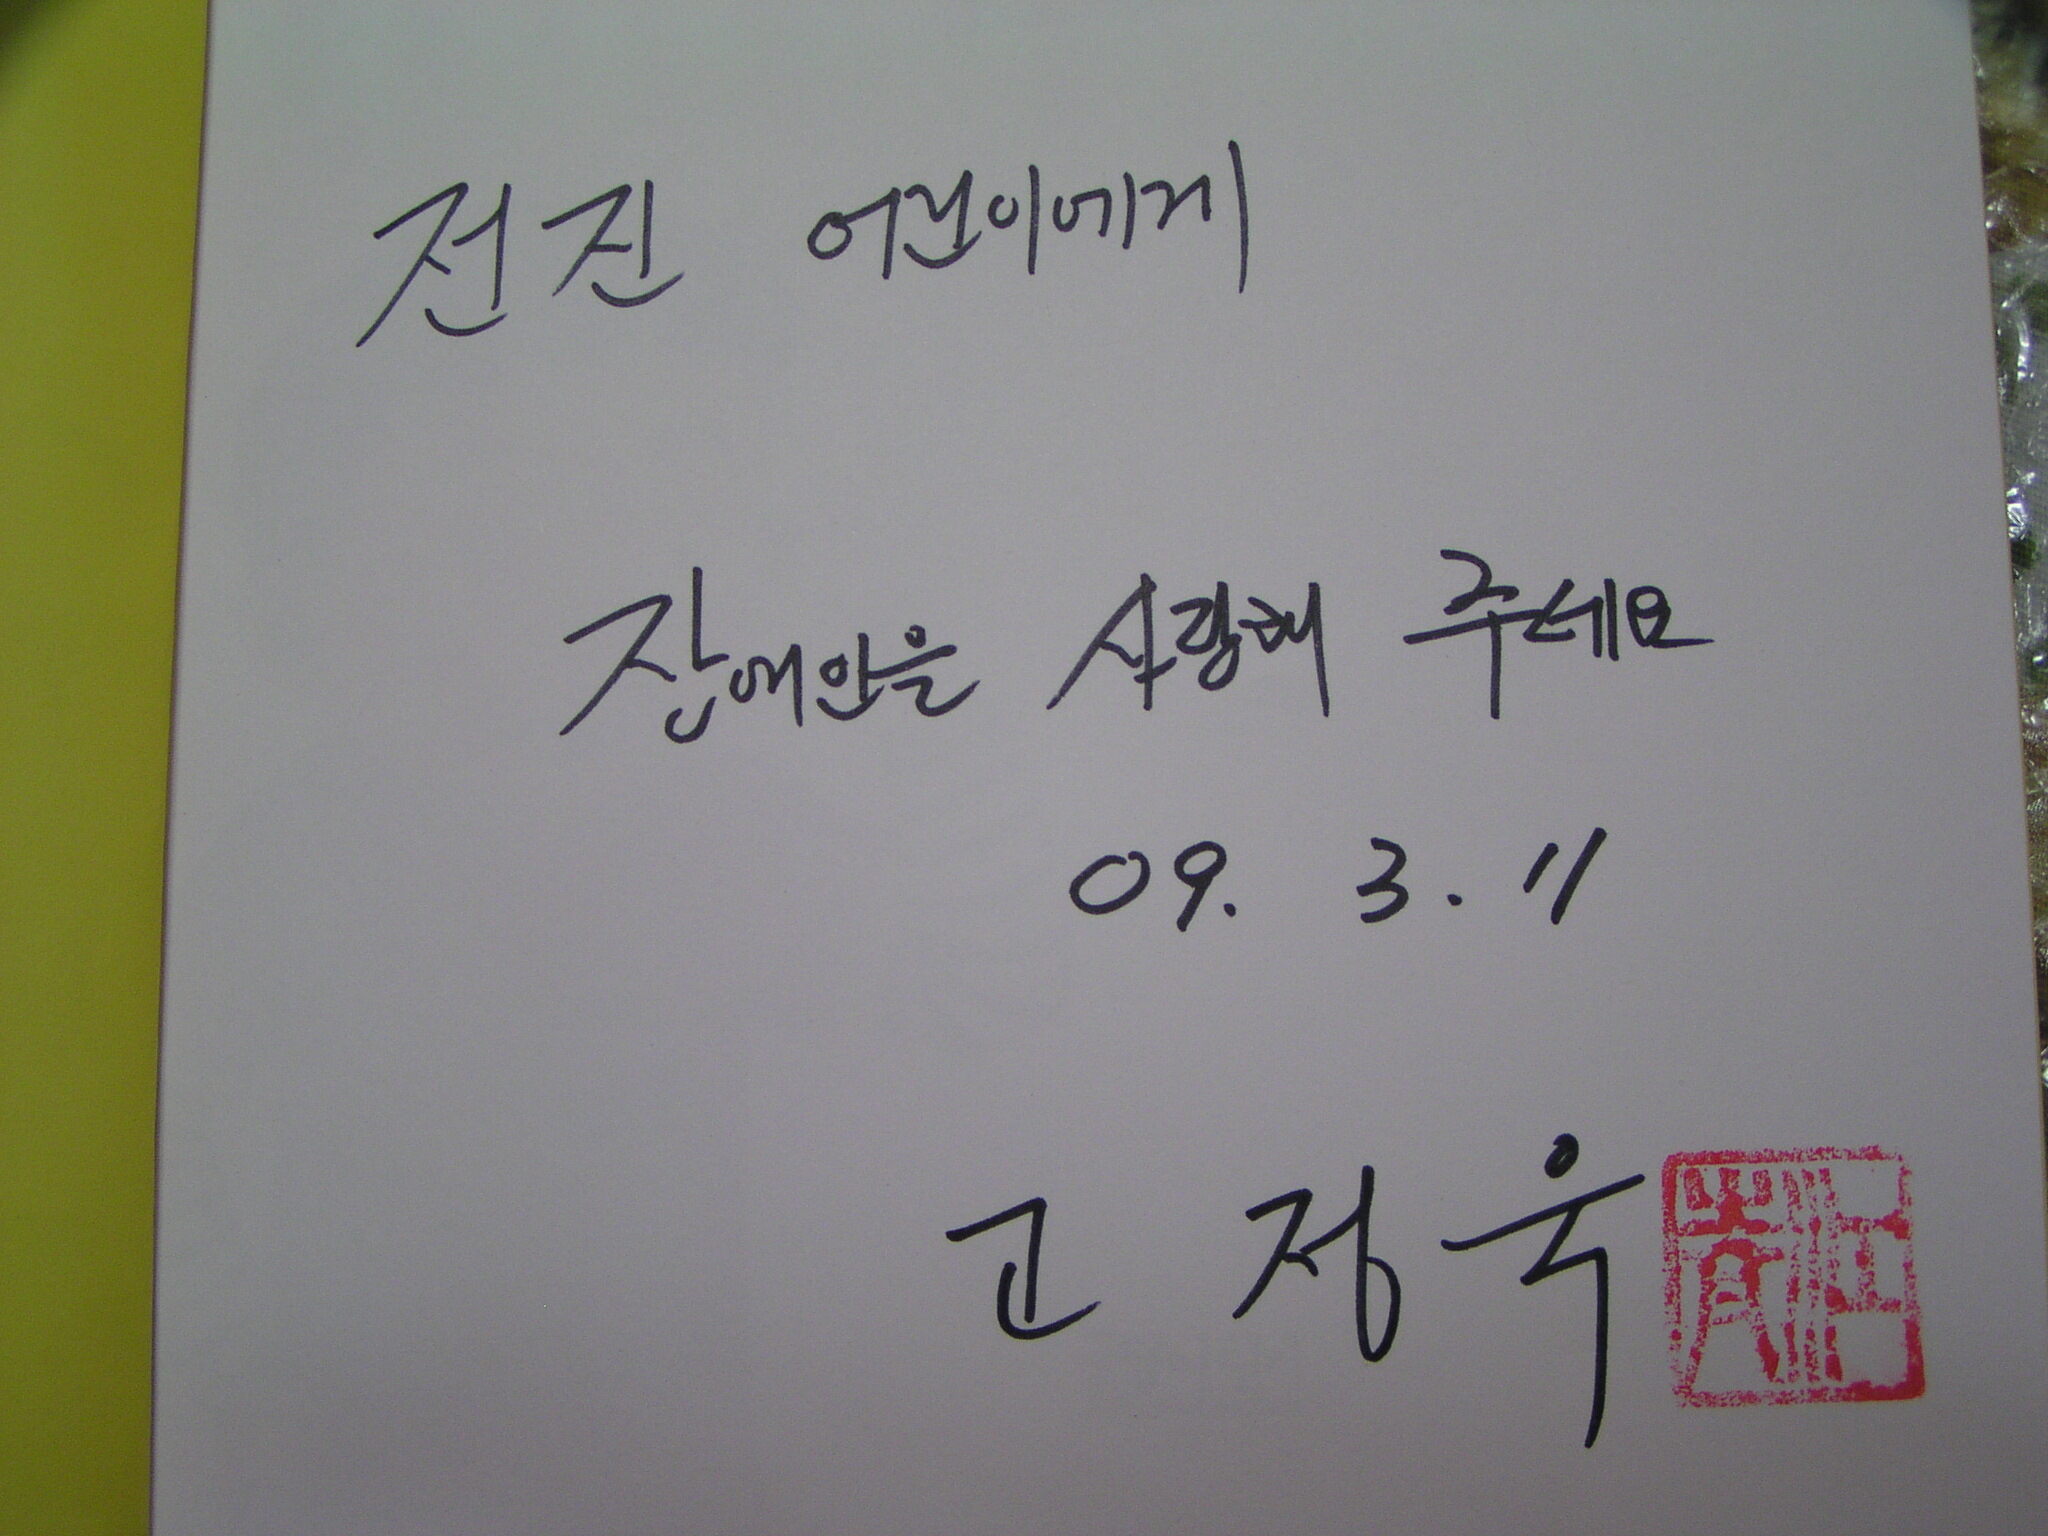 전진 어린이에게
장애인을 사랑해 주세요
09. 3. 11
고정욱